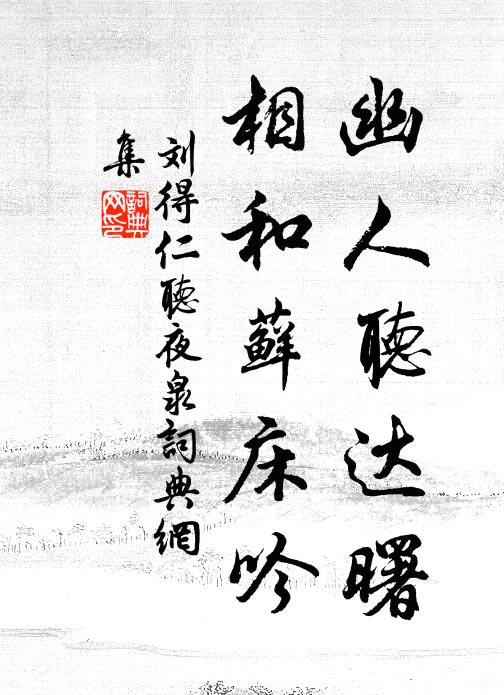 幽人聽达曙
相和蘚床吟
刘得仁聽夜泉詞典網
集
詞典
网印